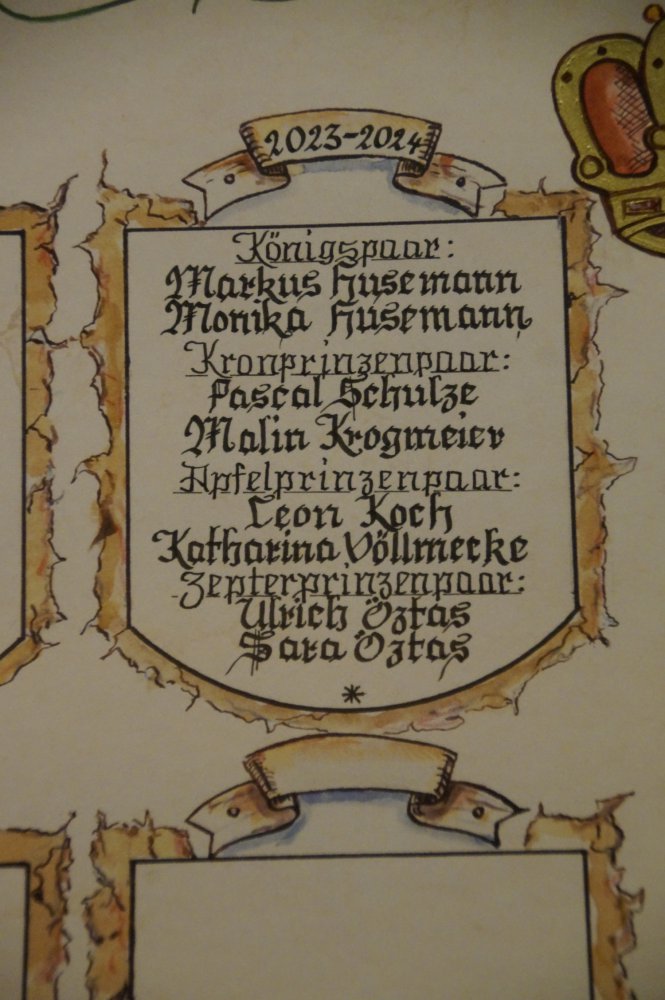 2023-2024
Königspaar:
Markus Husemann
Monika Husemann
Kronprinzenpaar:
Pascal Schulze
Malin Krogmeier
Apfelprinzenpaar:
Leon Koch
Katharina Völlmecke
Zepterprinzenpaar:
Ulrich Öztas
Sara Öztas
*